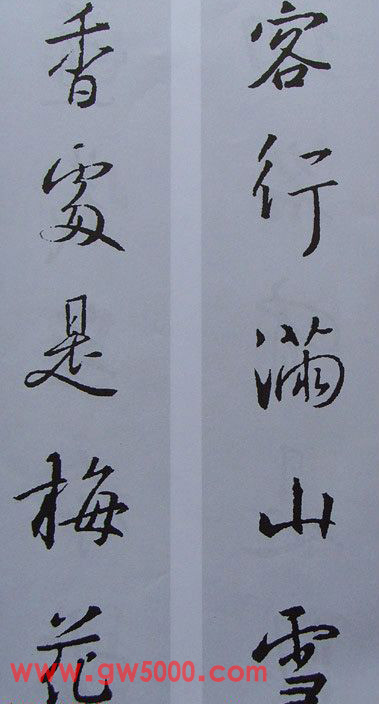 客行滿山雪
香處是梅花
www.gw5000.com